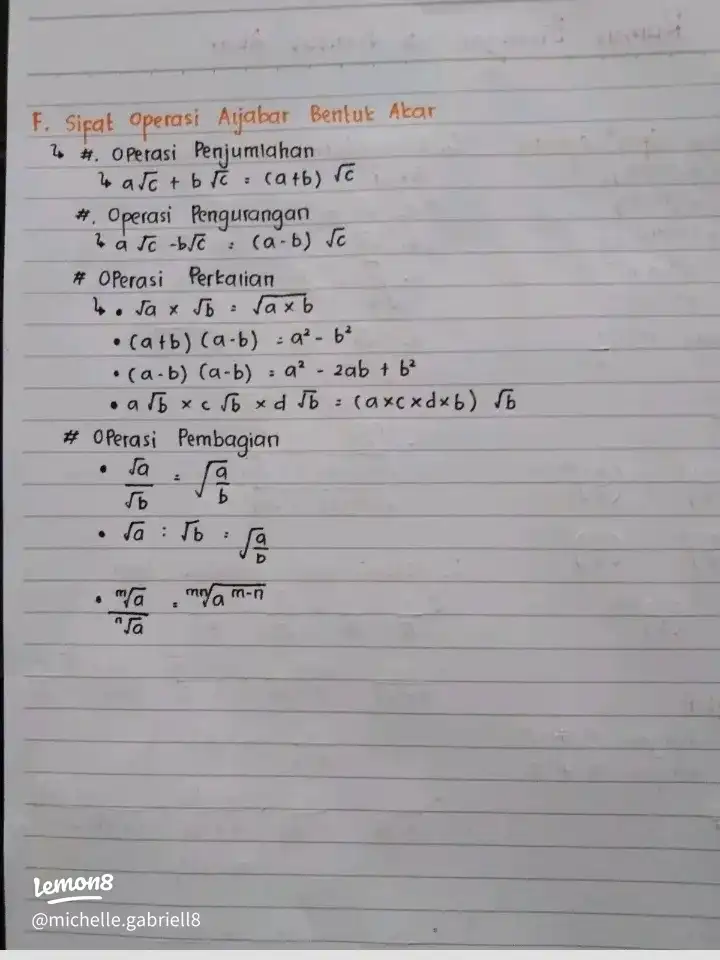 F. Sifat Operasi Aljabar Bentuk Akar
↳ #. Operasi Penjumlahan
↳ a√c + b√c = (a+b) √c
#. Operasi Pengurangan
↳ a √c - b√c = (a-b) √c
# Operasi Perkalian
↳ • √a × √b = √(a×b)
• (a+b) (a-b) = a² - b²
• (a-b) (a-b) = a² - 2ab + b²
• a√b × c√b × d√b = (a×c×d×b) √b
# Operasi Pembagian
• √a/√b = √(a/b)
• √a : √b = √(a/b)
• ᵐ√a/ⁿ√a = ᵐⁿ√a^(m-n)
lemon8
@michelle.gabriell8